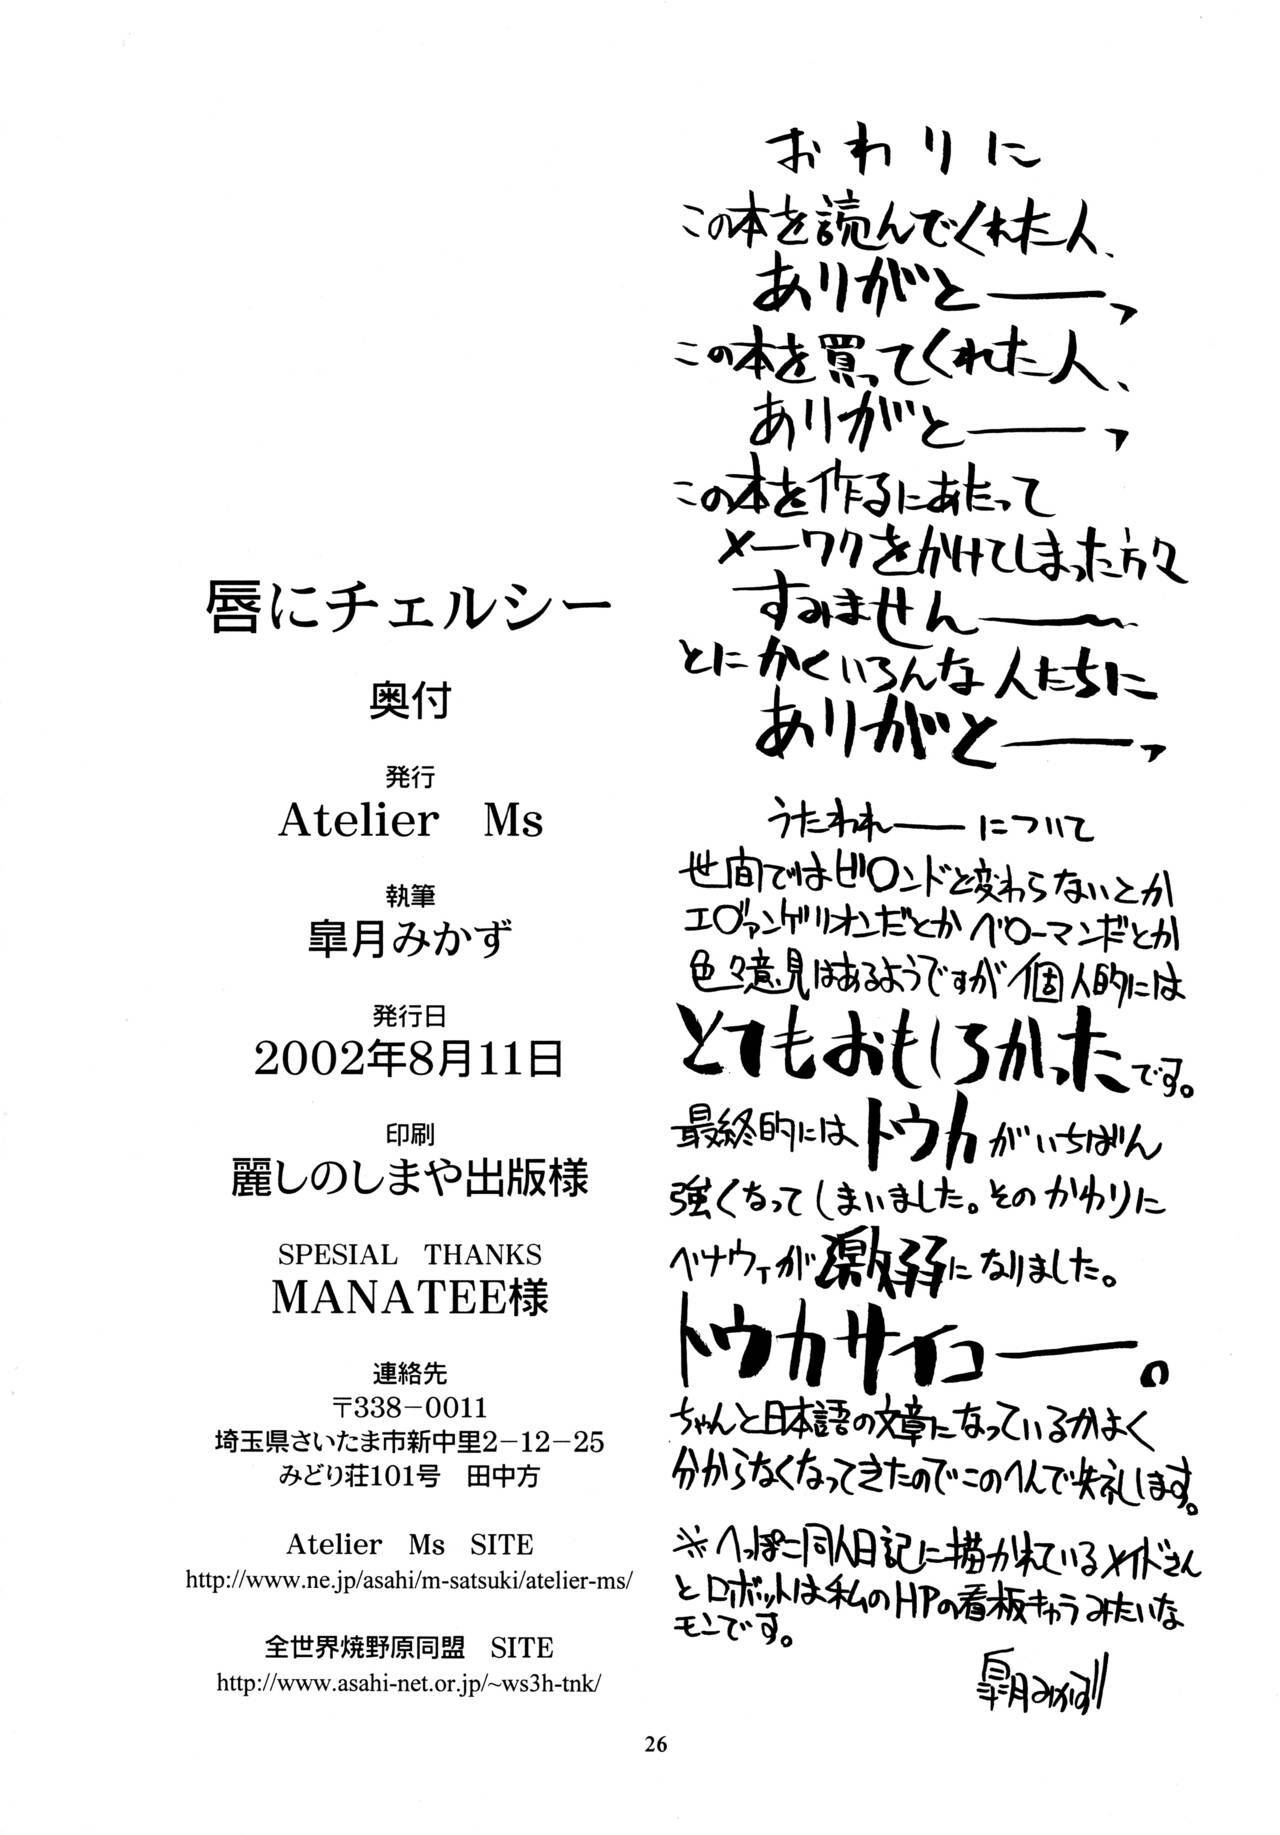 おわりに
この本を読んでくれた人、
ありがとーーっ
この本を買ってくれた人、
ありがとーーっ
この本を作るにあたって
メーワクをかけてしまった方々
すみませんーー〜
とにかくいろんな人たちに
ありがとーーっ
うたわれーーについて
世間ではビ〇ンドと変わらないとか
エ〇ァンゲリオンだとか ベ〇ーマンだとか
色々意見はあるようですが個人的には
とてもおもしろかったです。
最終的にはトウカがいちばん
強くなってしまいました。そのかわりに
ベナウィが激弱になりました。
トウカサイコーー。
ちゃんと日本語の文章になっているかよく
分からなくなってきたのでこのへんで失礼します。
※へっぽこ同人日記に描かれているメイドさん
とロボットは私のHPの看板キャラみたいな
モンです。
皐月みかず
唇にチェルシー
奥付
発行
Atelier Ms
執筆
皐月みかず
発行日
2002年8月11日
印刷
麗しのしまや出版様
SPESIAL THANKS
MANATEE様
連絡先
〒338－0011
埼玉県さいたま市新中里2－12－25
みどり荘101号 田中方
Atelier Ms SITE
http://www.ne.jp/asahi/m-satsuki/atelier-ms/
全世界焼野原同盟 SITE
http://www.asahi-net.or.jp/~ws3h-tnk/
26